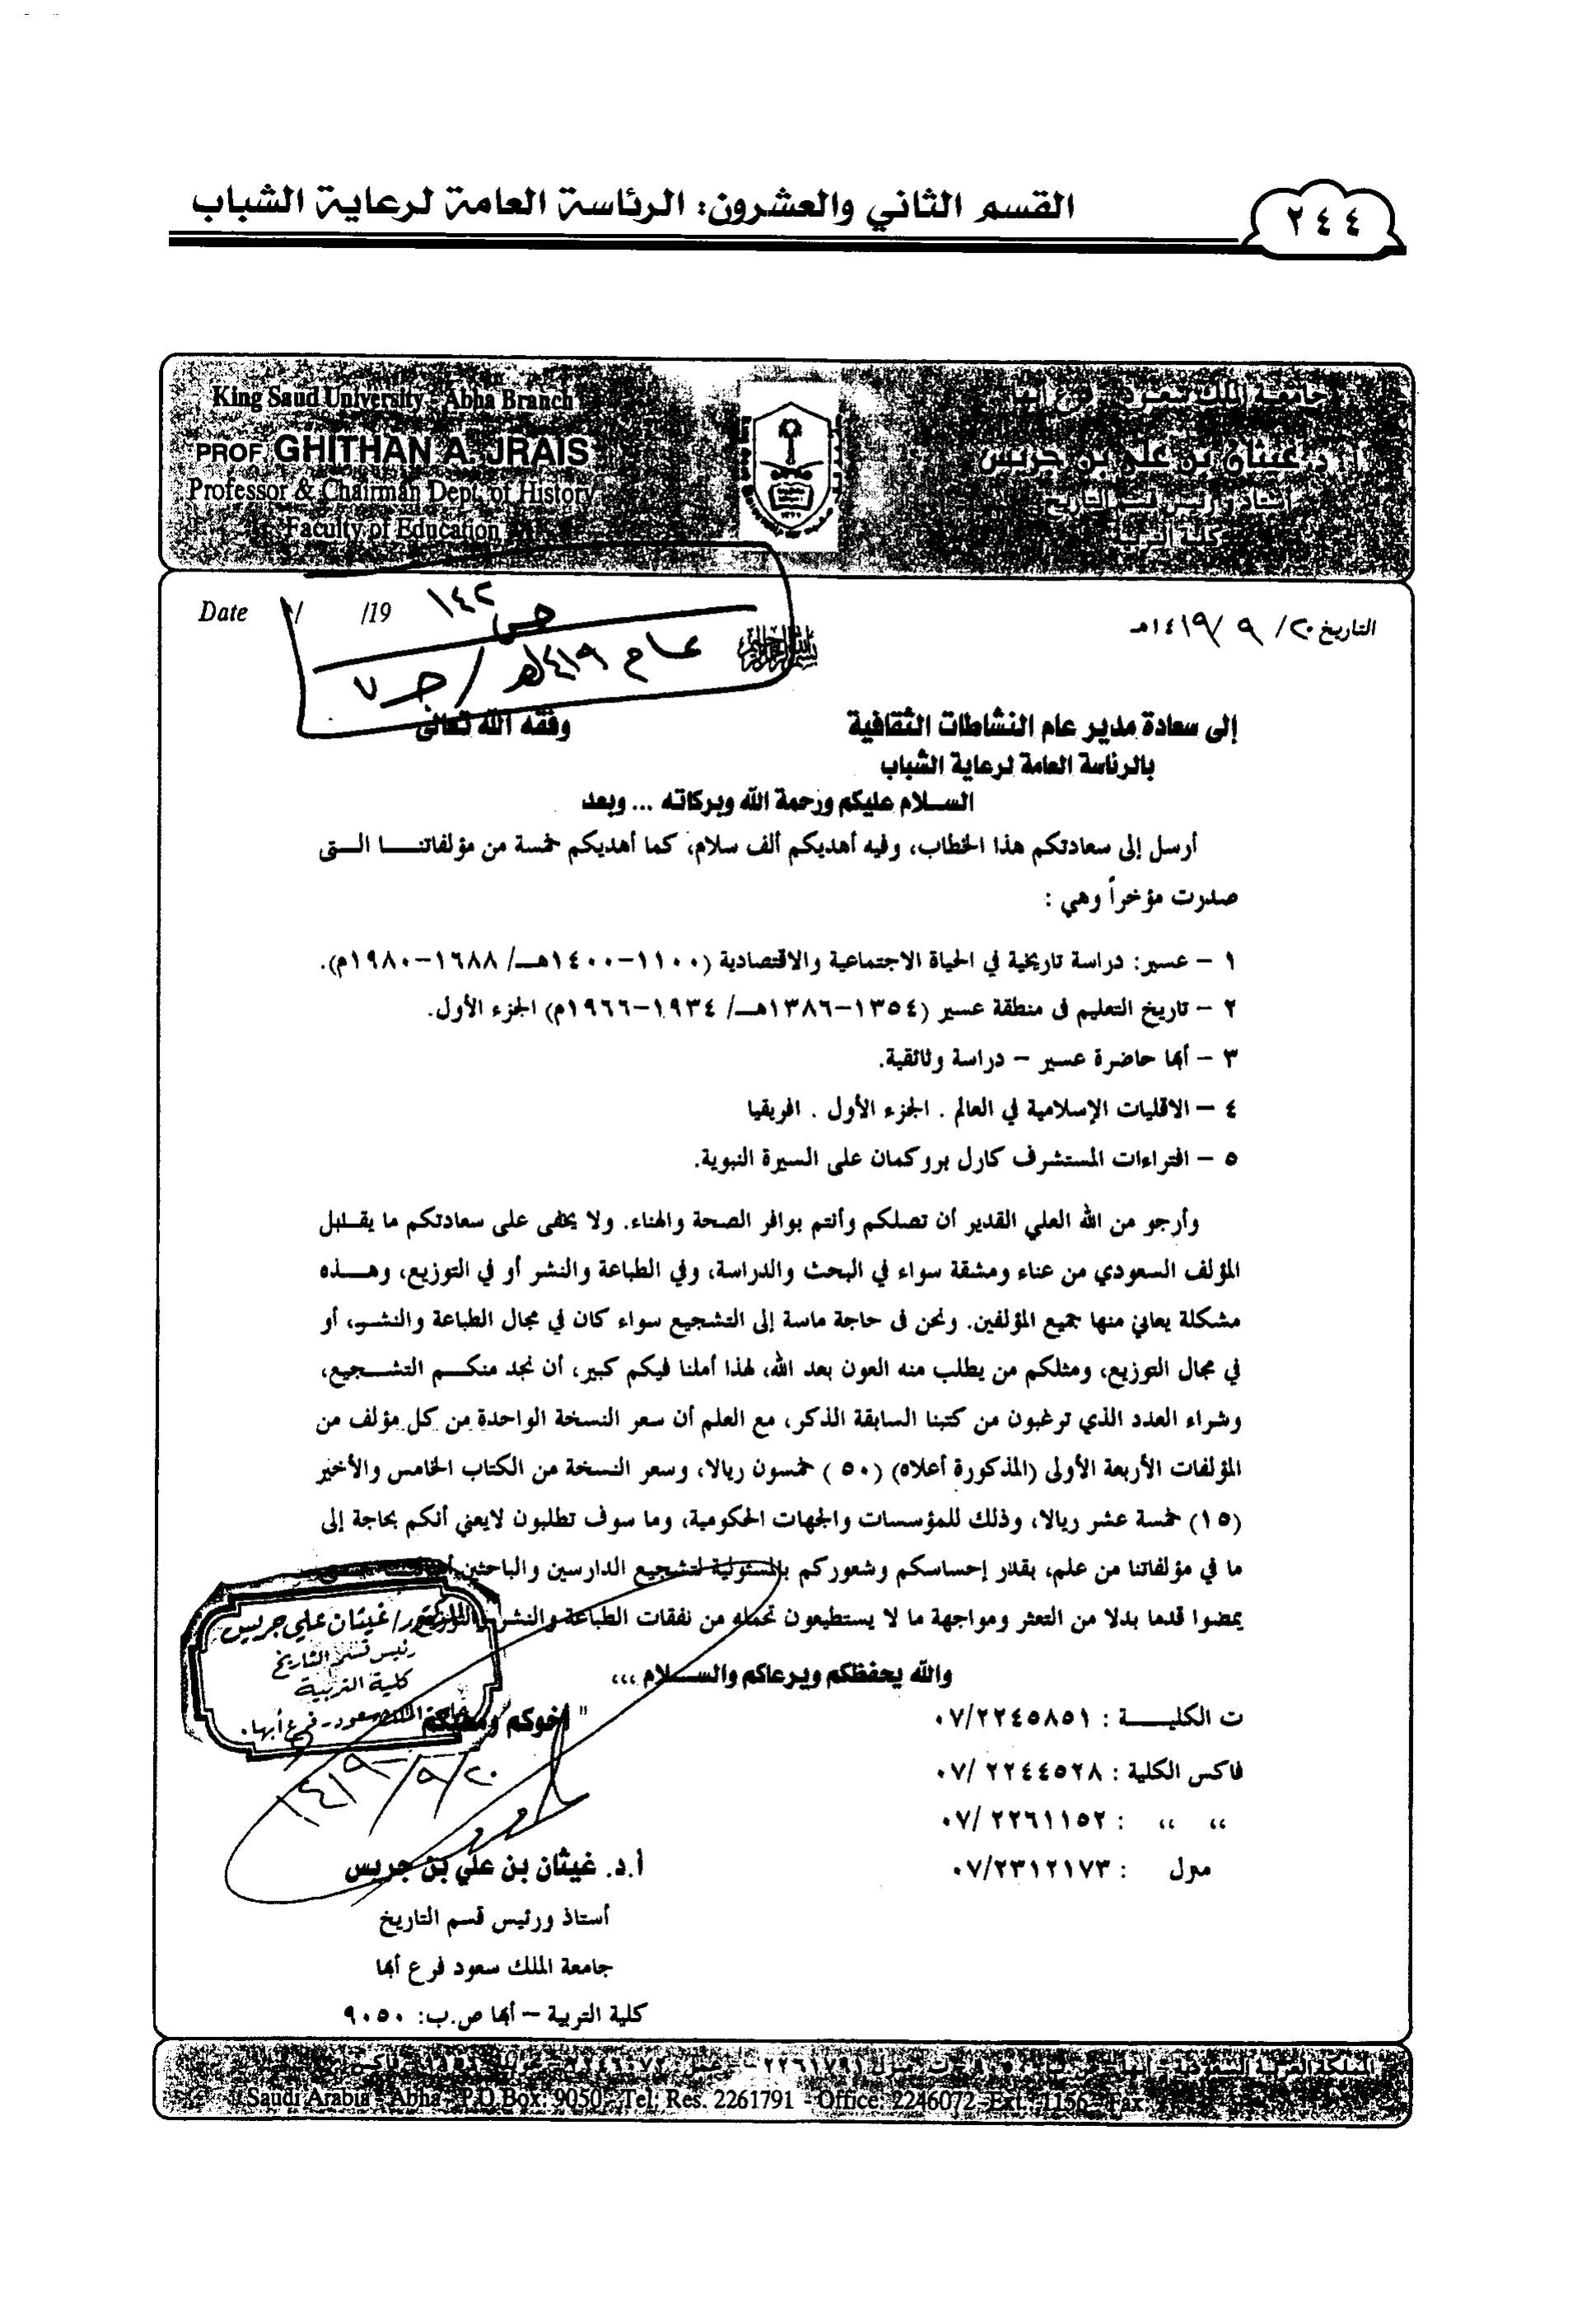 القسم الثاني والعشرون: الرئاسة العامة لرعاية الشباب
٢٤٤
King Saud University - Abha Branch
PROF. GHITHAN A. JRAIS
Professor & Chairman Dept. of History
Faculty of Education
جامعة الملك سعود - فرع أبها
أ.د. غيثان بن علي بن جريس
أستاذ ورئيس قسم التاريخ
كلية التربية
Date / /19
ص ١٤٢
عام ١٤١٩هـ / جـ ٧
التاريخ ٢٠/ ٩ /١٤١٩هـ
إلى سعادة مدير عام النشاطات الثقافية وفقه الله تعالى
بالرئاسة العامة لرعاية الشباب
السلام عليكم ورحمة الله وبركاته ... وبعد
أرسل إلى سعادتكم هذا الخطاب، وفيه أهديكم ألف سلام، كما أهديكم خمسة من مؤلفاتنا التى
صدرت مؤخراً وهي :
١ – عسير: دراسة تاريخية في الحياة الاجتماعية والاقتصادية (١١٠٠-١٤٠٠هـ/ ١٦٨٨-١٩٨٠م).
٢ – تاريخ التعليم فى منطقة عسير (١٣٥٤-١٣٨٦هـ/ ١٩٣٤-١٩٦٦م) الجزء الأول.
٣ – أبها حاضرة عسير – دراسة وثائقية.
٤ – الاقليات الإسلامية في العالم . الجزء الأول . افريقيا
٥ – افتراءات المستشرف كارل بروكمان على السيرة النبوية.
وأرجو من الله العلي القدير أن تصلكم وأنتم بوافر الصحة والهناء. ولا يخفى على سعادتكم ما يقابل
المؤلف السعودي من عناء ومشقة سواء في البحث والدراسة، وفي الطباعة والنشر أو في التوزيع، وهذه
مشكلة يعانى منها جميع المؤلفين. ونحن فى حاجة ماسة إلى التشجيع سواء كان في مجال الطباعة والنشر، أو
في مجال التوزيع، ومثلكم من يطلب منه العون بعد الله، لهذا أملنا فيكم كبير، أن نجد منكم التشجيع،
وشراء العدد الذي ترغبون من كتبنا السابقة الذكر، مع العلم أن سعر النسخة الواحدة من كل مؤلف من
المؤلفات الأربعة الأولى (المذكورة أعلاه) (٥٠) خمسون ريالا، وسعر النسخة من الكتاب الخامس والأخير
(١٥) خمسة عشر ريالا، وذلك للمؤسسات والجهات الحكومية، وما سوف تطلبون لايعني أنكم بحاجة إلى
ما في مؤلفاتنا من علم، بقدر إحساسكم وشعوركم بالمسئولية لتشجيع الدارسين والباحثين
يمضوا قدما بدلا من التعثر ومواجهة ما لا يستطيعون تحمله من نفقات الطباعة والنشر والتوزيع
الدكتور/ غيثان علي جريس
رئيس قسم التاريخ
كلية التربية
جامعة الملك سعود - فرع أبها.
والله يحفظكم ويرعاكم والسلام ،،،
أخوكم ومحبكم
١٤١٩/٩/٢٠
ت الكليــة : ٠٧/٢٢٤٥٨٥١
فاكس الكلية : ٠٧/ ٢٢٤٤٥٢٨
،، ،، : ٠٧/ ٢٢٦١١٥٢
منزل : ٠٧/٢٣١٢١٧٣
أ.د. غيثان بن علي بن جريس
أستاذ ورئيس قسم التاريخ
جامعة الملك سعود فرع أبها
كلية التربية – أبها ص.ب: ٩٠٥٠
Saudi Arabia - Abha - P.O.Box: 9050 - Tel: Res. 2261791 - Office: 2246072 - Ext. 1156 - Fax: